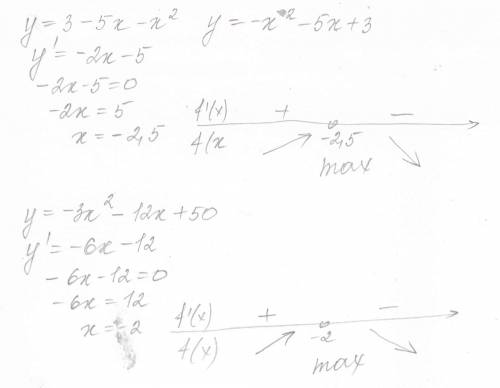 y = 3 - 5x - x² y = -x² - 5x + 3
y' = -2x - 5
-2x - 5 = 0
-2x = 5
x = -2,5
f'(x) + -
f(x -2,5
max
y = -3x² - 12x + 50
y' = -6x - 12
-6x - 12 = 0
-6x = 12
x = -2
f'(x) + -
f(x) -2
max